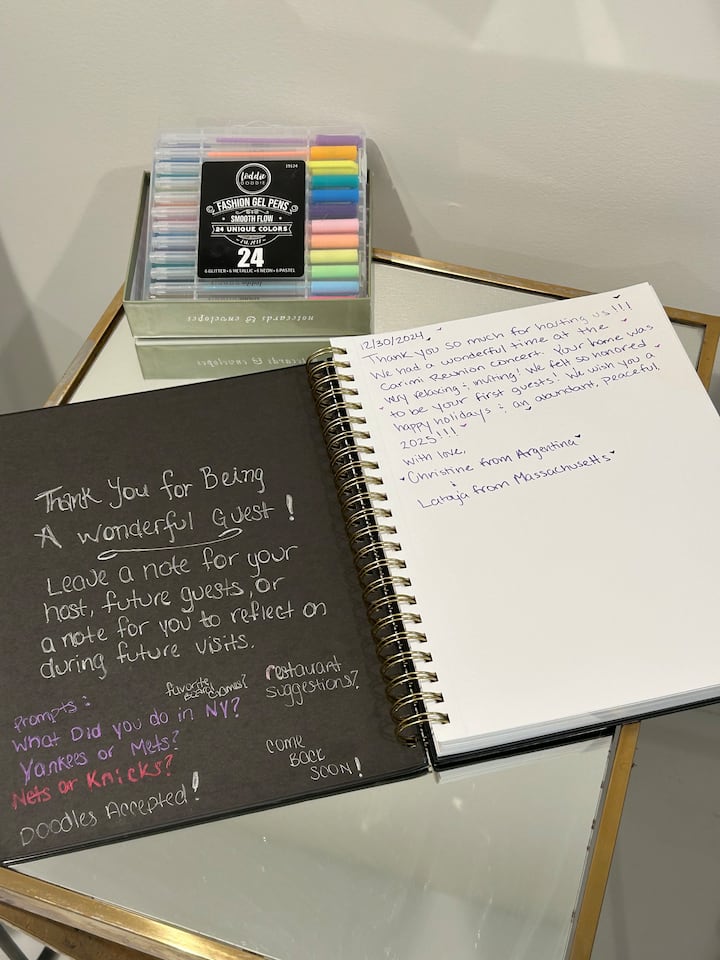 19524
foddie
DOODIE
FASHION GEL PENS
SMOOTH FLOW
24 UNIQUE COLORS
24
6 GLITTER • 6 METALLIC • 6 NEON • 6 PASTEL
notecards & envelopes
notecards & envelopes
Thank You for Being
A wonderful Guest!
Leave a note for your
host, future guests, or
a note for you to reflect on
during future visits.
Prompts:
What Did you do in NY?
Yankees or Mets?
Nets or Knicks?
Doodles Accepted!
favorite
Board Games?
restaurant
suggestions?
COME
BACK
SOON!
12/30/2024
Thank you so much for hosting us!!!
We had a wonderful time at the
Carimi Reunion concert. Your home was
very relaxing & inviting! We felt so honored
to be your first guests! We wish you a
happy holidays & an abundant, peaceful
2025!!!
With love,
Christine from Argentina
&
Lataja from Massachusetts